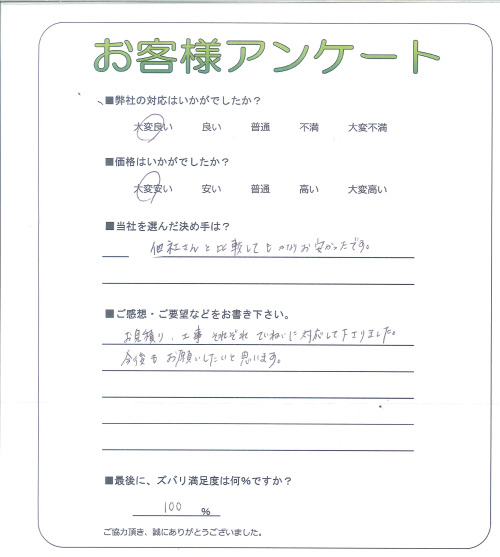 お客様アンケート
■弊社の対応はいかがでしたか？
大変良い 良い 普通 不満 大変不満
■価格はいかがでしたか？
大変安い 安い 普通 高い 大変高い
■当社を選んだ決め手は？
他社さんと比較してもかなりお安かったです。
■ご感想・ご要望などをお書き下さい。
お見積り、工事それぞれていねいに対応して下さりました。
今後もお願いしたいと思います。
■最後に、ズバリ満足度は何％ですか？
100 ％
ご協力頂き、誠にありがとうございました。